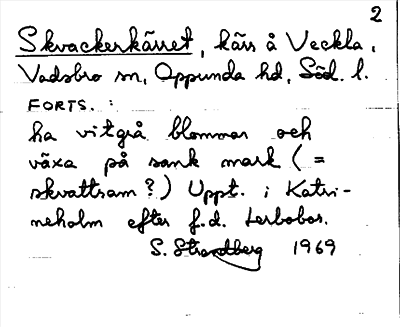 2
Skvackerkärret, kärr å Veckla,
Vadsbro sn, Oppunda hd, Söd. l.
FORTS. :
ha vitgrå blommor och
växa på sank mark (=
skvattram?) Uppt. i Katri-
neholm efter f.d. Lerbobor.
S. Strandberg 1969